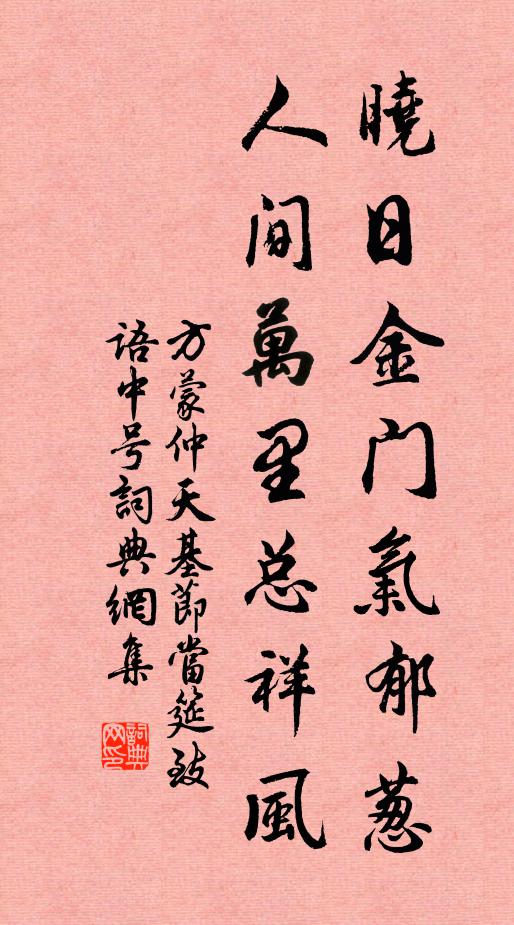 曉日金门氣郁葱
人间萬里总祥風
方蒙仲天基節當筵致
语中号詞典網集
詞典网印